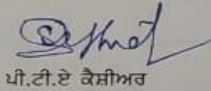 ਪੀ.ਟੀ.ਏ ਕੈਸ਼ੀਅਰ